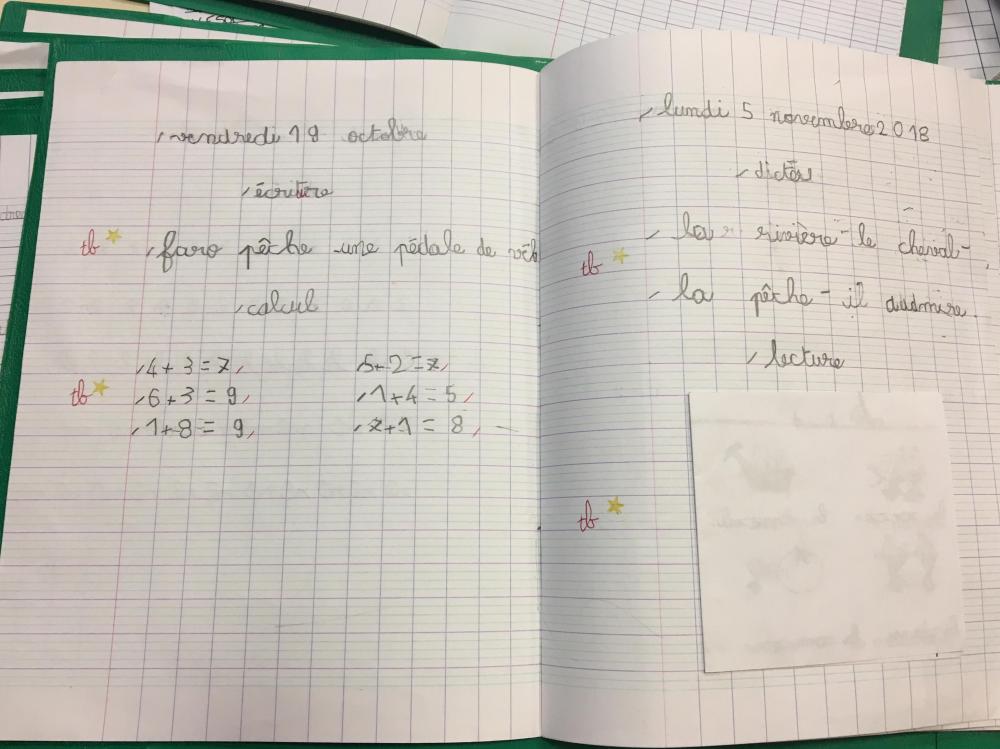 vendredi 19 octobre
écriture
tb faro pêche une pédale de vélo
calcul
4+3=7, 5+2=7,
tb 6+3=9, 1+4=5,
1+8=9, 7+1=8,
lundi 5 novembre 2018
dictés
la rivière - le cheval -
tb
la pêche - il audmire.
lecture
tb